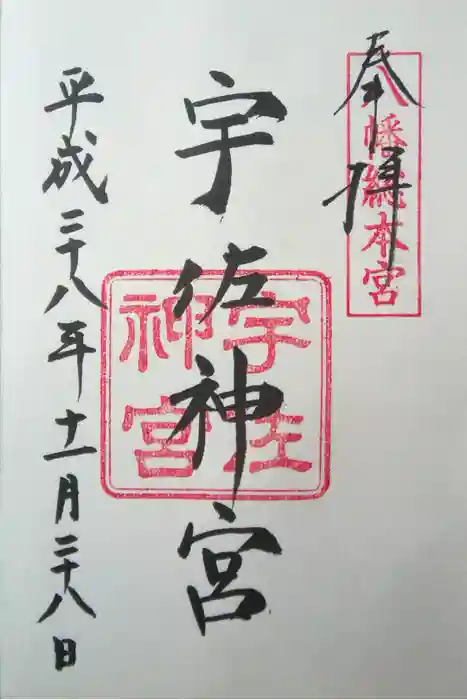 奉拝
八幡総本宮
宇佐神宮
宇佐神宮
平成二十八年十一月二十八日